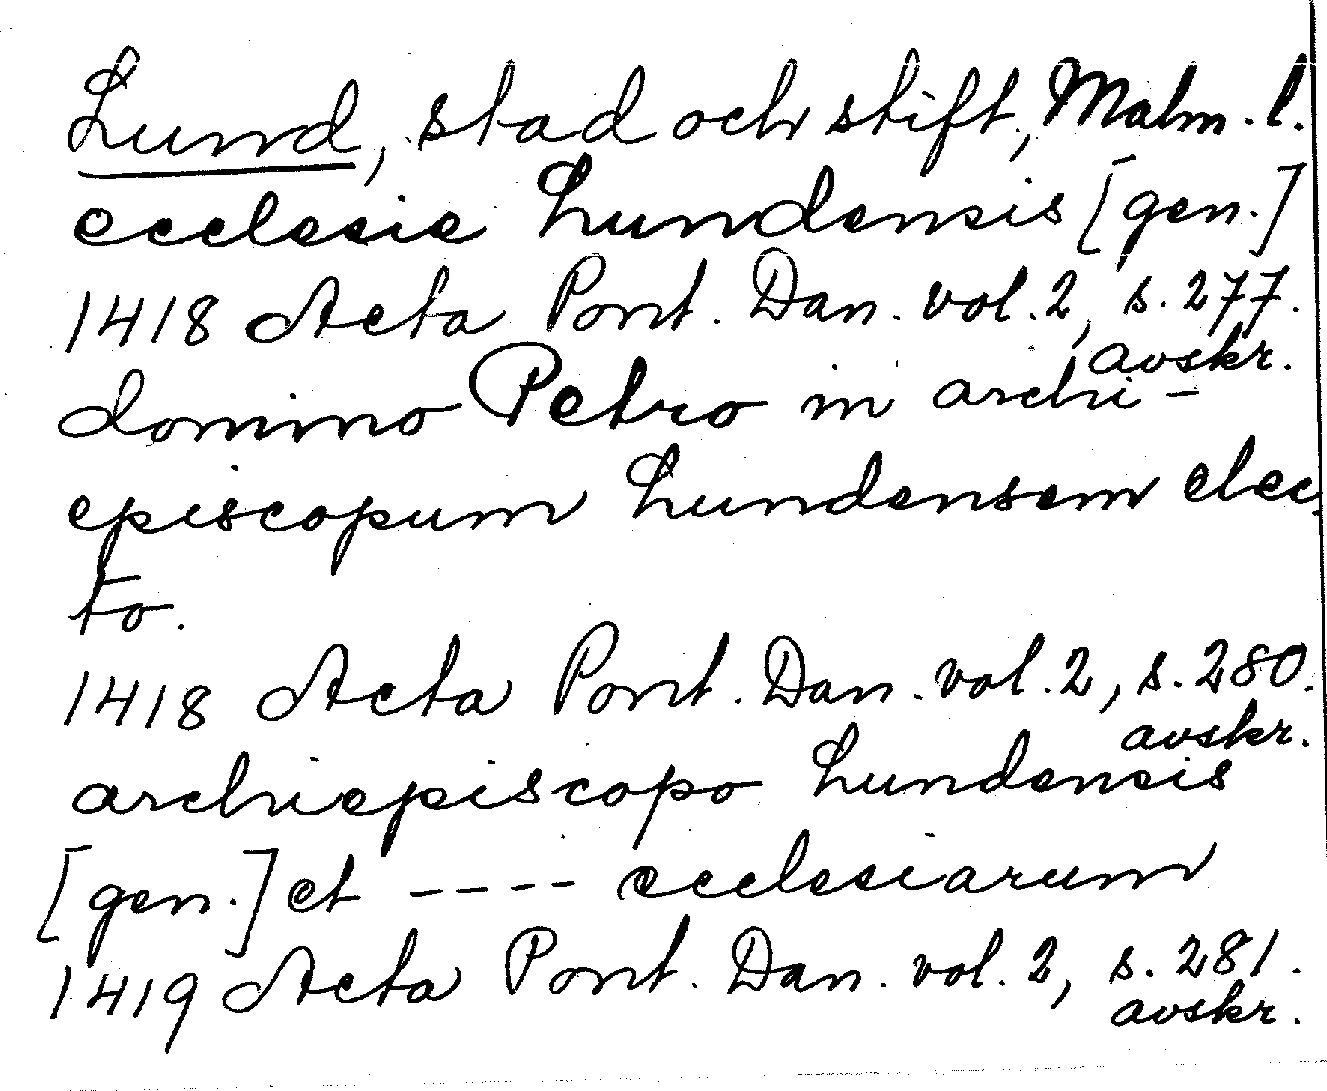 Lund, stad och stift, Malm. l.
ecclesie Lundensis [gen.]
1418 Acta Pont. Dan. vol. 2, s. 277.
avskr.
domino Petro in archi-
episcopum Lundensem elec-
to.
1418 Acta Pont. Dan. vol. 2, s. 280.
avskr.
archiepiscopo Lundensis
[gen.] et ---- ecclesiarum
1419 Acta Pont. Dan. vol. 2, s. 281.
avskr.